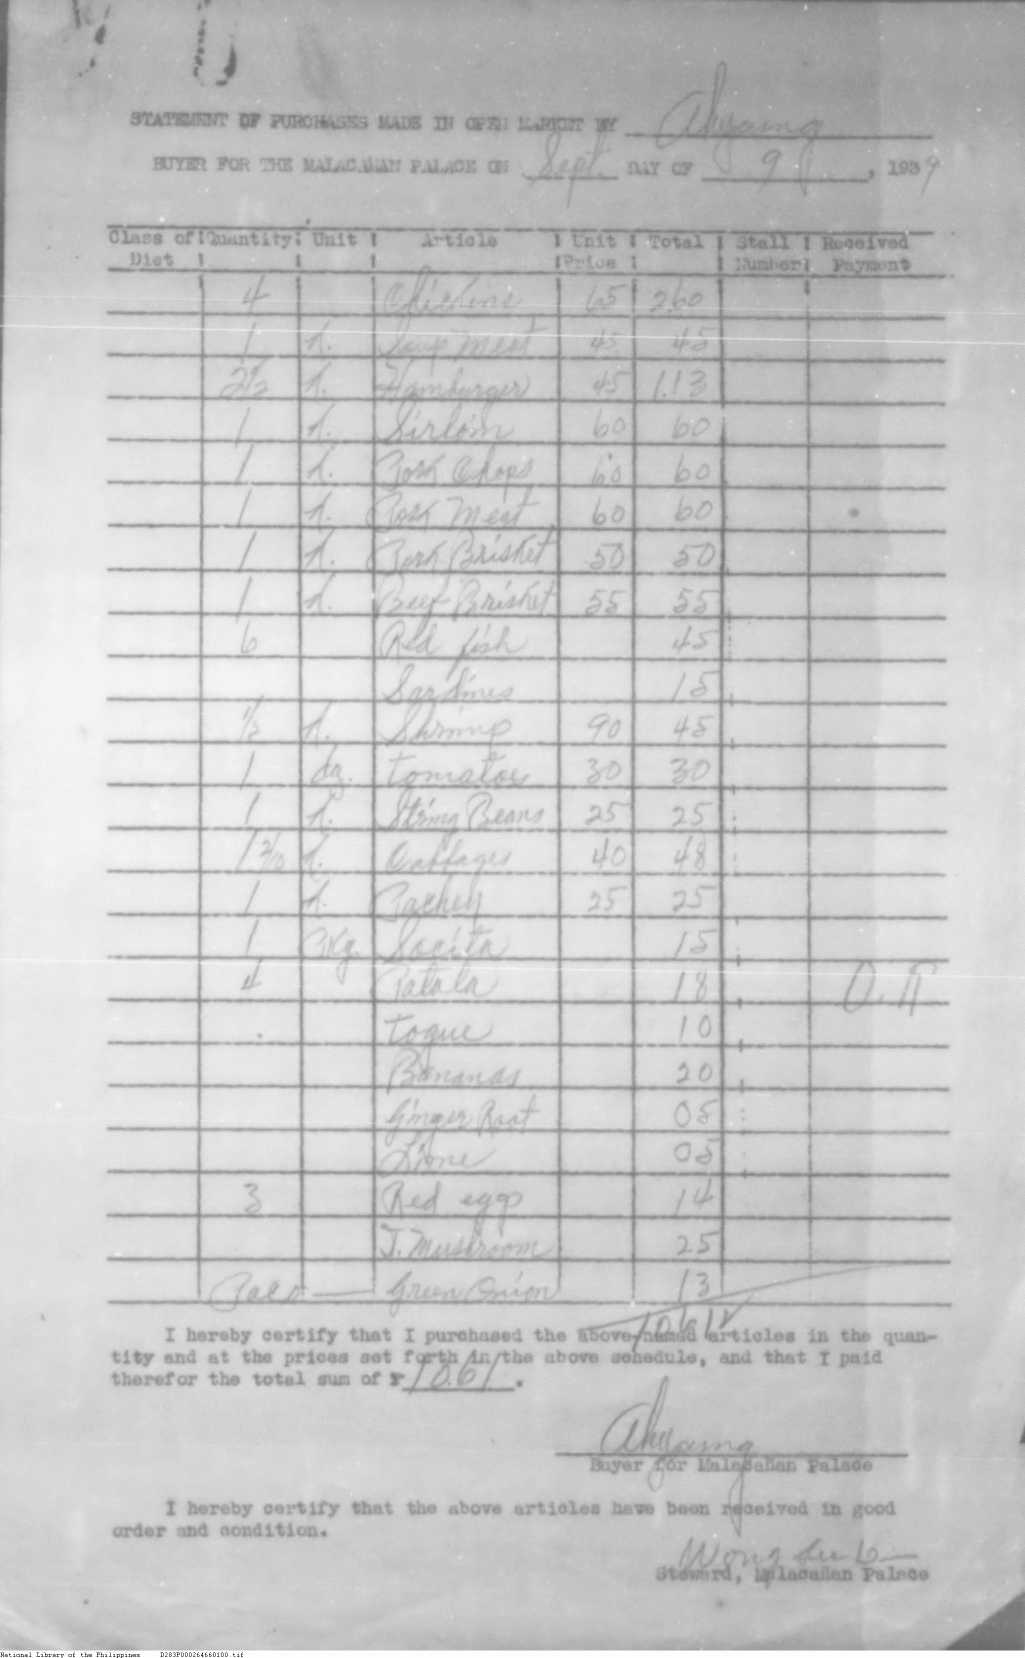 STATEMENT OF PURCHASES MADE IN OPEN MARKET BY Ahyaing
BUYER FOR THE MALACAÑAN PALACE ON Sept. DAY OF 9, 1939
Class of Diet Quantity Unit Article Unit Price Total Stall Number Received Payment
4 Chickins 65 2.60
1 k. Soup Meat 45 45
2 1/2 k. Hamburger 45 1.13
1 k. Sirloin 60 60
1 k. Pork Chops 60 60
1 k. Pork Meat 60 60
1 k. Pork Brisket 50 50
1 k. Beef Brisket 55 55
6 Red fish 45
Sardines 15
1/2 k. Shrimp 90 45
1 dz. tomatoes 30 30
1 k. String Beans 25 25
1 2/10 k. Cabbages 40 48
1 k. Pachey 25 25
1 Pkg. 15
4 Patola 18 O.K
togue 10
Bananas 20
Ginger Root 05
Lime 05
3 Red eggs 14
T. Mushroom 25
Paid Green Onion 13
10.61
I hereby certify that I purchased the above-named articles in the quan-
tity and at the prices set forth in the above schedule, and that I paid
therefor the total sum of ₱ 10.61.
Ahyaing
Buyer for Malacañan Palace
I hereby certify that the above articles have been received in good
order and condition.
Wong
Steward, Malacañan Palace
National Library of the Philippines D283P000264660100.tif